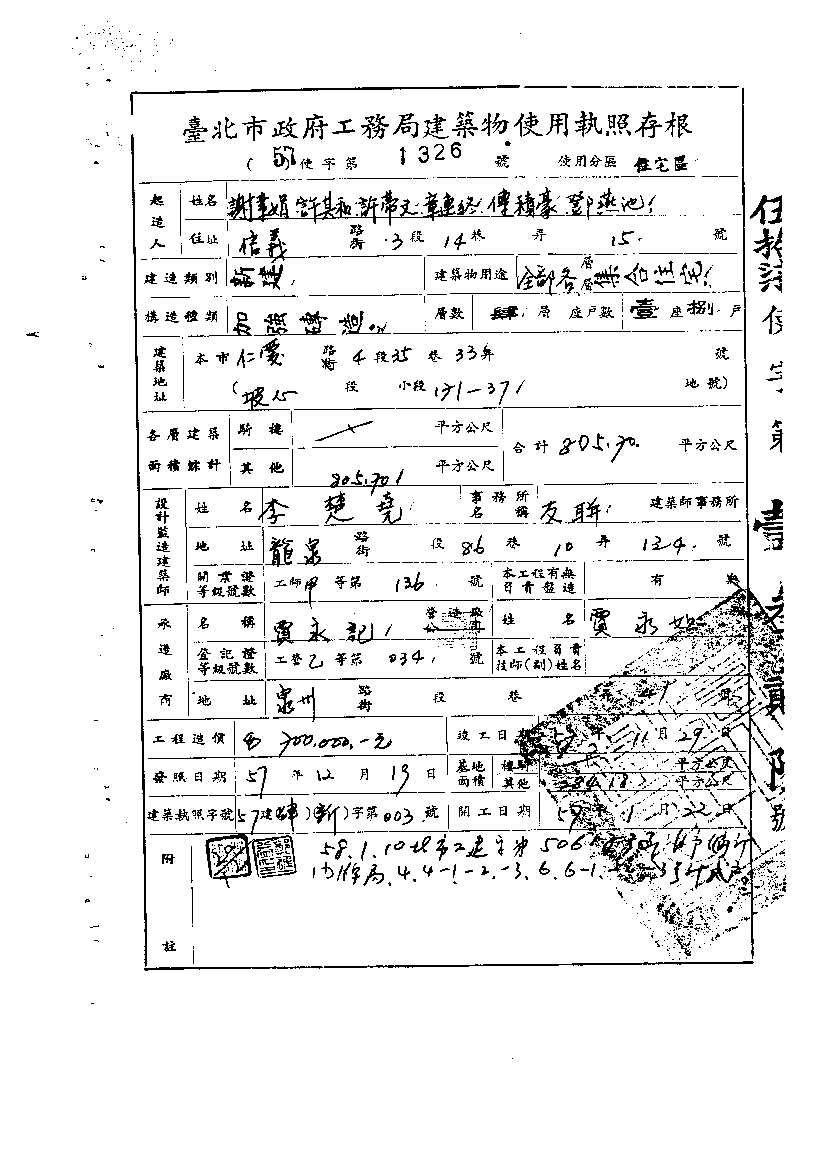 臺北市政府工務局建築物使用執照存根
(57)使字第 1326 號 使用分區 住宅區
起造人 姓名 許其和
住址 信義 路街 3段 14巷 弄 15. 號
建造類別 新建 建築物用途 全部各層集合住宅
構造種類 加強磚造 層數 肆 層 座戶數 壹座捌戶
建築地址 本市 仁愛 路街 4段 35巷 33弄 號
( 坡心 段 小段 171-371 地號)
各層建築面積總計 騎樓 平方公尺 合計 805.70. 平方公尺
其他 805.70 平方公尺
設計監造建築師 姓名 李楚堯 事務所名稱 友聯 建築師事務所
地址 龍泉 路街 段 86巷 10弄 124. 號
開業證等級號數 工師甲等第 136. 號 本工程有無負責監造 有 無
承造廠商 名稱 賈永記 姓名 賈永
登記證等級號數 工登乙等第 034. 號 本工程負責技師(副)姓名
地址 泉州 路街 段 巷 弄 41 號
工程造價 700,000.-元 竣工日期 年11月29日
發照日期 57年12月13日 基地面積 騎樓 平方公尺
其他 平方公尺
建築執照字號 57建( )(新)字第003號 開工日期 57年1月22日
附註 58.1.10北市工建字第506
4.4-1-2.-3.6.6-1.
使字第壹參貳陸號